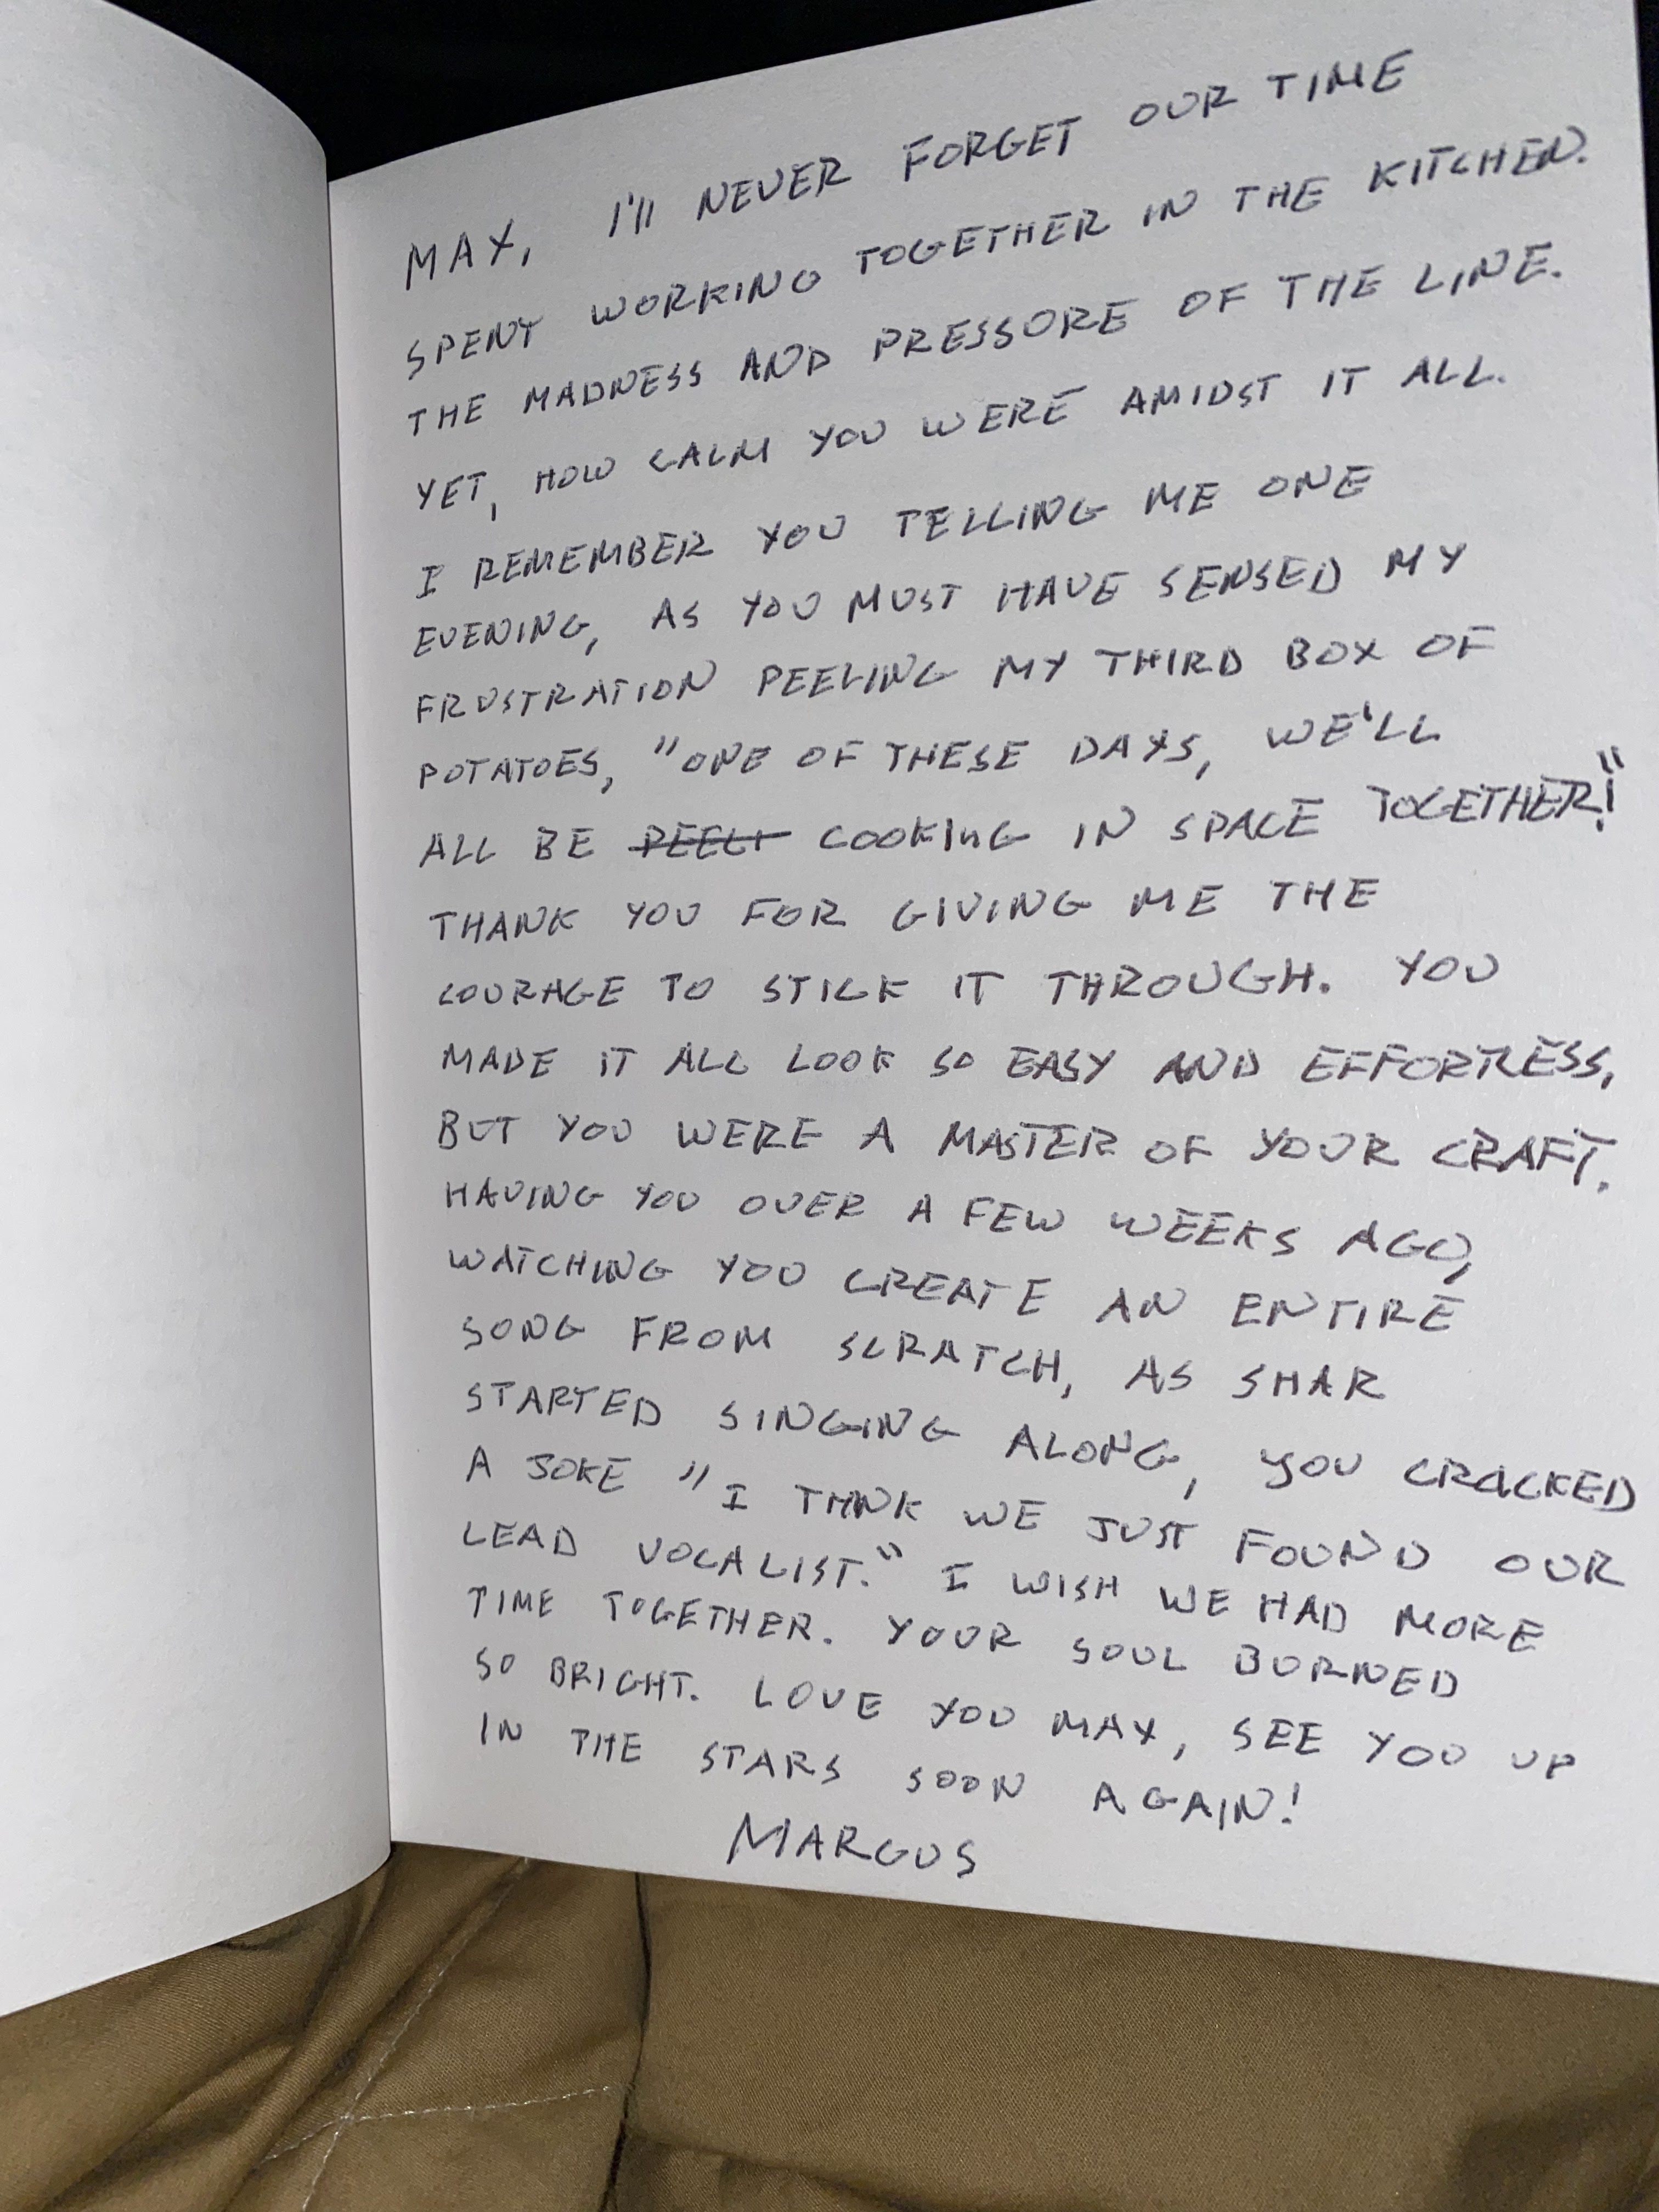 MAX, I'll NEVER FORGET OUR TIME
SPENT WORKING TOGETHER IN THE KITCHEN.
THE MADNESS AND PRESSURE OF THE LINE.
YET, HOW CALM YOU WERE AMIDST IT ALL.
I REMEMBER YOU TELLING ME ONE
EVENING, AS YOU MUST HAVE SENSED MY
FRUSTRATION PEELING MY THIRD BOX OF
POTATOES, "ONE OF THESE DAYS, WE'LL
ALL BE COOKING IN SPACE TOGETHER!"
THANK YOU FOR GIVING ME THE
COURAGE TO STICK IT THROUGH. YOU
MADE IT ALL LOOK SO EASY AND EFFORTLESS,
BUT YOU WERE A MASTER OF YOUR CRAFT.
HAVING YOU OVER A FEW WEEKS AGO,
WATCHING YOU CREATE AN ENTIRE
SONG FROM SCRATCH, AS SHAR
STARTED SINGING ALONG, YOU CRACKED
A JOKE "I THINK WE JUST FOUND OUR
LEAD VOCALIST." I WISH WE HAD MORE
TIME TOGETHER. YOUR SOUL BURNED
SO BRIGHT. LOVE YOU MAX, SEE YOU UP
IN THE STARS SOON AGAIN!
MARGUS